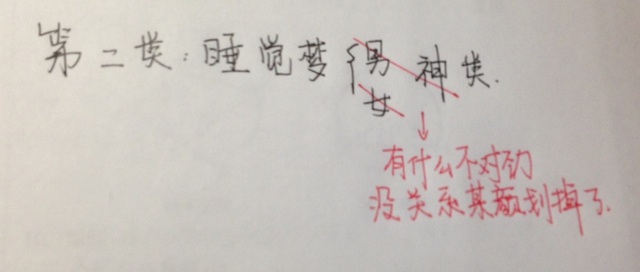 第二类:睡觉梦{男神类.
女
有什么不对劲
没关系某颜划掉了.